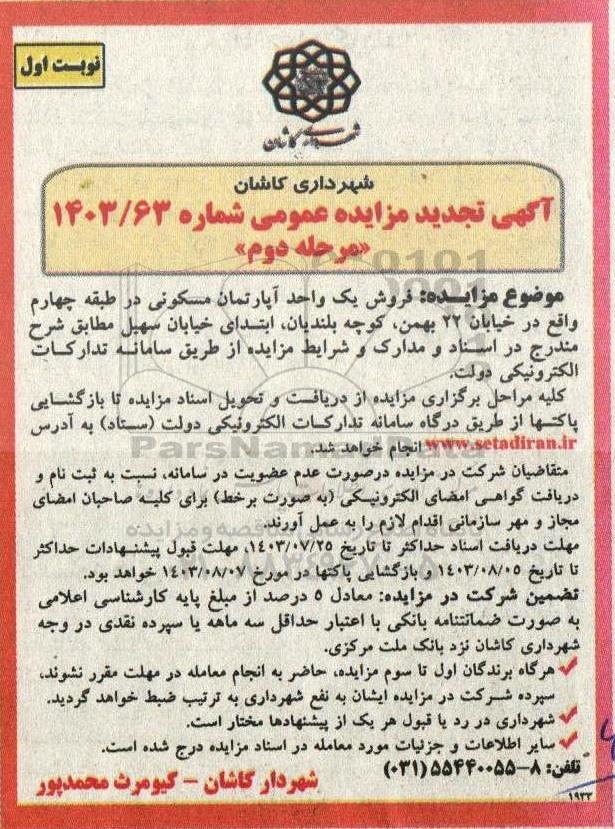 نوبت اول
شهرداری کاشان
شهرداری کاشان
آگهی تجدید مزایده عمومی شماره ۱۴۰۳/۶۳
«مرحله دوم»
موضوع مزایـــده: فروش یک واحد آپارتمان مسکونی در طبقه چهارم
واقع در خیابان ۲۲ بهمن، کوچه بلندیان، ابتـدای خیابان سهیل مطابق شرح
مندرج در اسـناد و مدارک و شرایط مزایده از طریق سامانـه تدارکـات
الکترونیکی دولت.
کلیه مراحل برگزاری مزایده از دریافـت و تحویل اسناد مزایده تا بازگشـایی
پاکتـها از طریق درگاه سامانه تدارکـات الکترونیکی دولت (سـتاد) به آدرس
www.setadiran.ir انجام خواهد شد.
متقاضیان شرکت در مزایده درصورت عدم عضویت در سامانه، نسبت به ثبت نام و
دریافت گواهـی امضای الکترونیـکی (به صورت برخط) برای کلیـه صاحبان امضای
مجاز و مهر سازمانی اقدام لازم را به عمل آورند.
مهلت دریافت اسناد حداکثر تا تاریخ ۱۴۰۳/۰۷/۲۵، مهلت قبول پیشنـهادات حداکثر
تا تاریخ ۱۴۰۳/۰۸/۰۵ و بازگشایی پاکتها در مورخ ۱۴۰۳/۰۸/۰۷ خواهد بود.
تضمین شرکت در مزایده: معادل ۵ درصد از مبلغ پایه کارشناسی اعلامی
به صورت ضمانتنامه بانکی با اعتبار حداقل سه ماهه یا سپرده نقدی در وجه
شهرداری کاشان نزد بانک ملت مرکزی.
هرگاه برندگان اول تا سوم مزایده، حاضر به انجام معامله در مهلت مقرر نشوند،
سپرده شـرکت در مزایده ایشان به نفع شهرداری به ترتیب ضبط خواهد گردید.
شهرداری در رد یا قبول هر یک از پیشنهادها مختار است.
سایر اطلاعات و جزئیات مورد معامله در اسناد مزایده درج شده است.
تلفن: ۸-۵۵۴۴۰۰۵۵ (۰۳۱)
شهردار کاشان – کیومرث محمدپور
۱۹۳۳
ParsNamadData